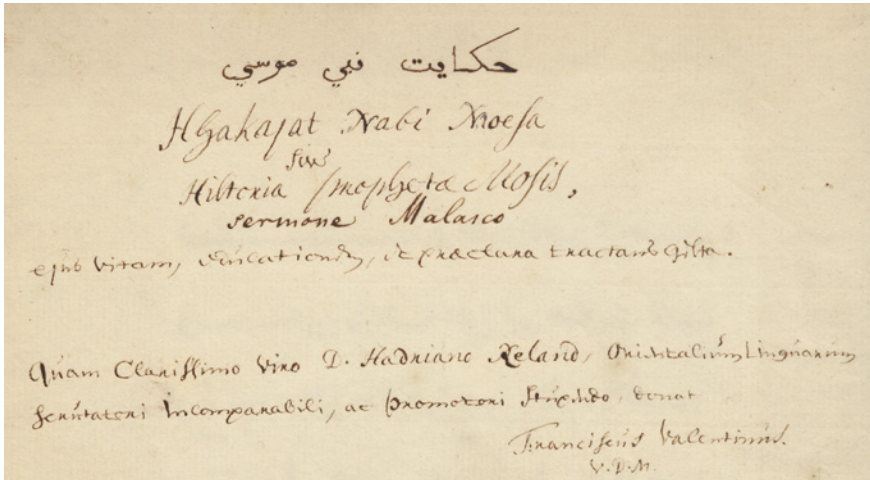 حكايت نبي موسي
Hhakajat Nabi Moesa
sive
Historia prophetæ Mosis,
sermone Malaico
ejus vitam, educationem, ac præclara tractans gesta.
Quam Clarissimo viro D. Hadriano Reland, Orientalium Linguarum
scrutatori incomparabili, ac promotori stupendo, donat
Franciscus Valentinus.
V.D.M.